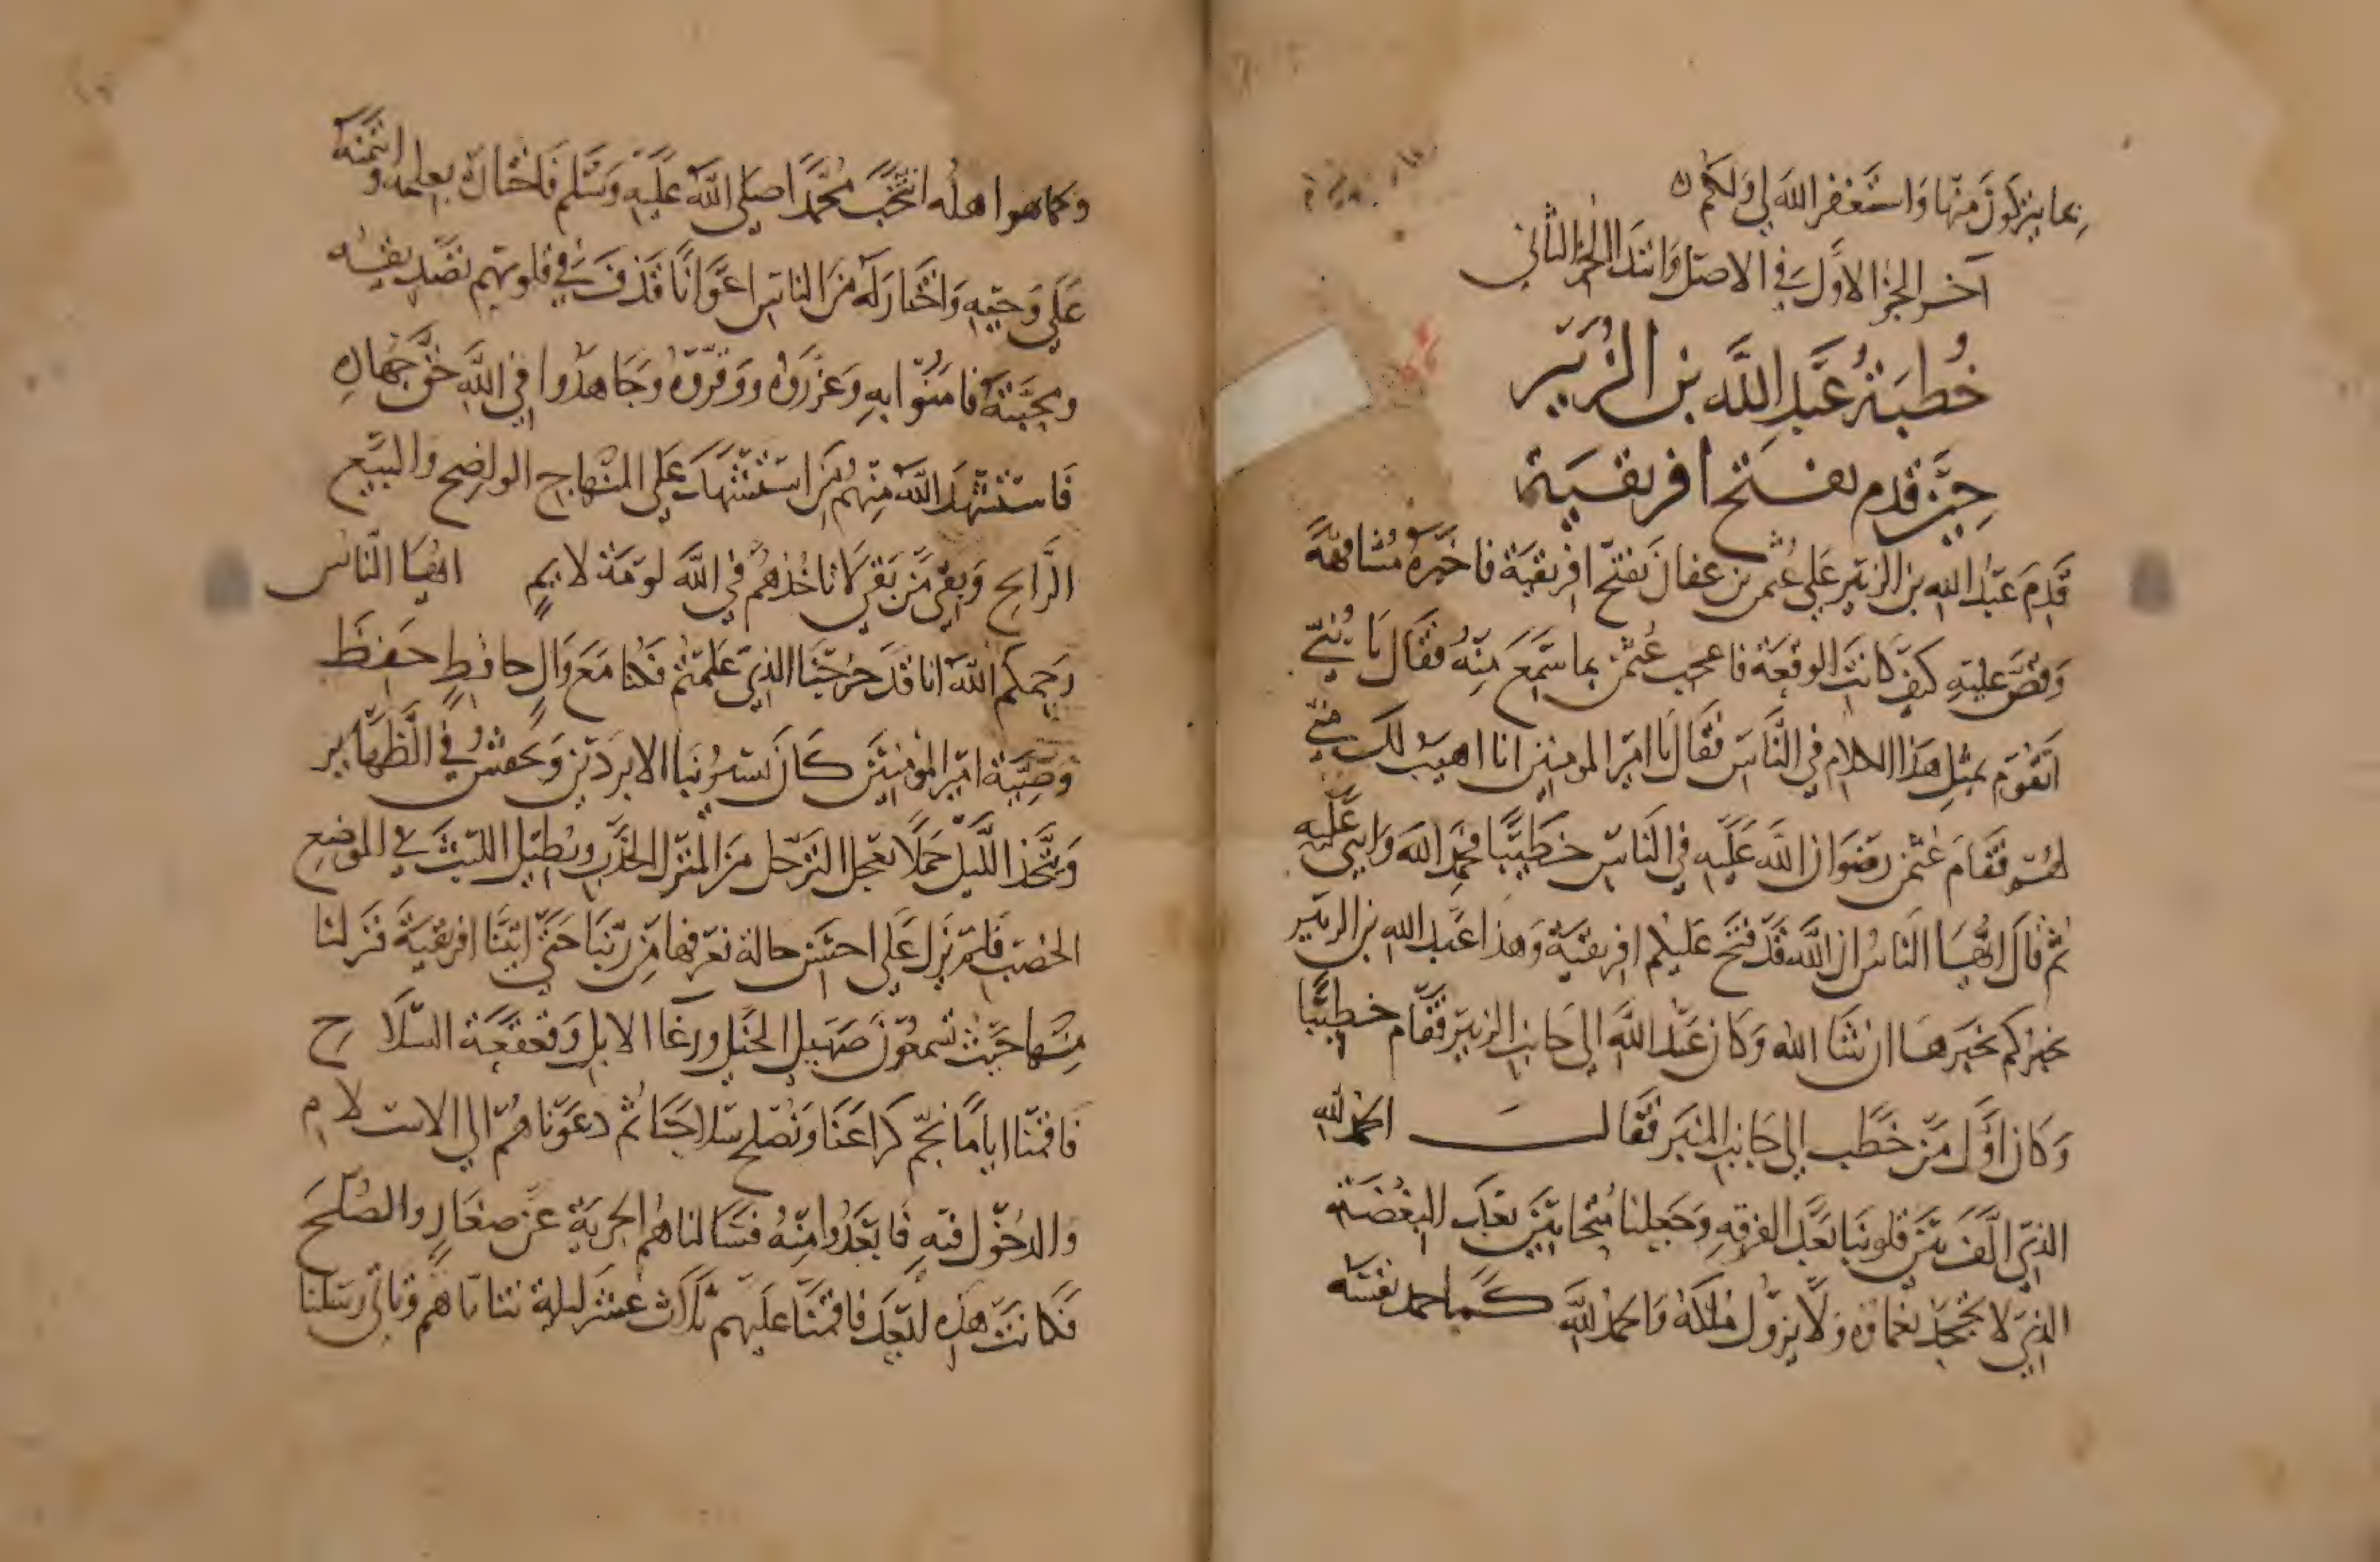 بما يزكون منها واستغفر الله لي ولكم
آخر الجز الاول في الاصل وابتدا الجز الثاني
خُطبَةُ عَبدِ اللَّه بن الزُبَير
حِينَ قدم بفتح افريقية
قَدِمَ عبدُ الله بن الزبير عَلي عُثمن بن عفان بفتح افريقية فاخبَرهُ مُشافهةً
وَقصَّ عليهِ كيفَ كانت الوقعَة فاعجب عُثمن بما سَمِعَ مِنهُ فقال يا بُنَيّ
اتقوم بمثلِ هَذا الكلام في النَّاس فقَال يَا امير المومنين انا اهيب لك مني
لهم فقَام عُثمن رضوَان اللَّه عَلَيه في النَاس خطيبًا فحمِدَ اللهَ وَاثني عَليه
ثم قالَ ايُّهَا النَاسُ ان اللَّه قَد فَتَح عَليكم افريقيةَ وَهذا عَبد الله بن الزبير
يخبركم خَبَرهَا ان شَا الله وَكان عَبد اللَّه الي جَانب المنبر فقَام خطيبًا
وَكان اوَّل مَن خطَب الي جَانب المنبَر فقَالَ الحمد لله
الذي الَّفَ بَيْنَ قلوبنَا بَعْدَ الفرقهِ وَجَعلنا مُتحابينَ بَعدَ البِغْضَة
الذي لا تُجحَدُ نعماؤه وَلا يزُول ملكه وَالحمدُ للَّهِ كما حمد نفسَه
وكما هوا اهلُه انتَخَبَ مُحمَّدًا صلي اللَّه عَليهِ وَسَلم فَاختاره بعلمه وايتمنه
عَلي وَحيِه وَاختَار لَهُ مِنَ الناسِ اعوَانًا قذفَ في قلوبهم تَصْديقه
ومحبَّتهُ فامَنوا به وَعزروه ووَقروه وَجَاهدُوا في اللَّهِ حَقَّ جهاده
فاستشهَدَ اللَّه مِنهُم مَن استشهدَ عَلي المنهاج الواضح والبيع
الرَّابح وَبَقِيَ مَن بَقي لا تاخُذهُم في اللَّه لومَة لايمٍ ايُّهَا النَّاس
رَحِمكم اللَّه انا قد خرجنَا للذي علمتم فكنا مَعَ وَالٍ حَافظٍ حَفِظَ
وصِيَّةَ امير المومنين كَان يَسير بنَا الابردَين وَيخفضُ في الظَّهَاير
وَيَتَّخذ اللَّيلَ جَملًا يعجل الترَحل مِنَ المنزِل الجَدب ويُطيل اللبث في الموضع
الخصب فلم نزل عَلَي احسَن حالة نعرفها مِن رَبّنَا حَتّي اتينَا افريقيةَ فنزلنا
مِنها حَيثُ تَسمعُونَ صَهيل الخيل ورغا الابل وَقعقعَة السّلاح
فاقمنا ايامًا نجم كراعنا وَنُصلح سلاحنَا ثم دعوناهُم الي الاسلام
والدخُول فيه فابعَدُوا مِنهُ فسَالناهم الجزيَة عَن صغَارٍ والصُلحَ
فكانت هَذِه ابعَد فاقمنَا عَليهم ثَلاث عشرَ ليلة نتاناهم وتاتي رسلنا